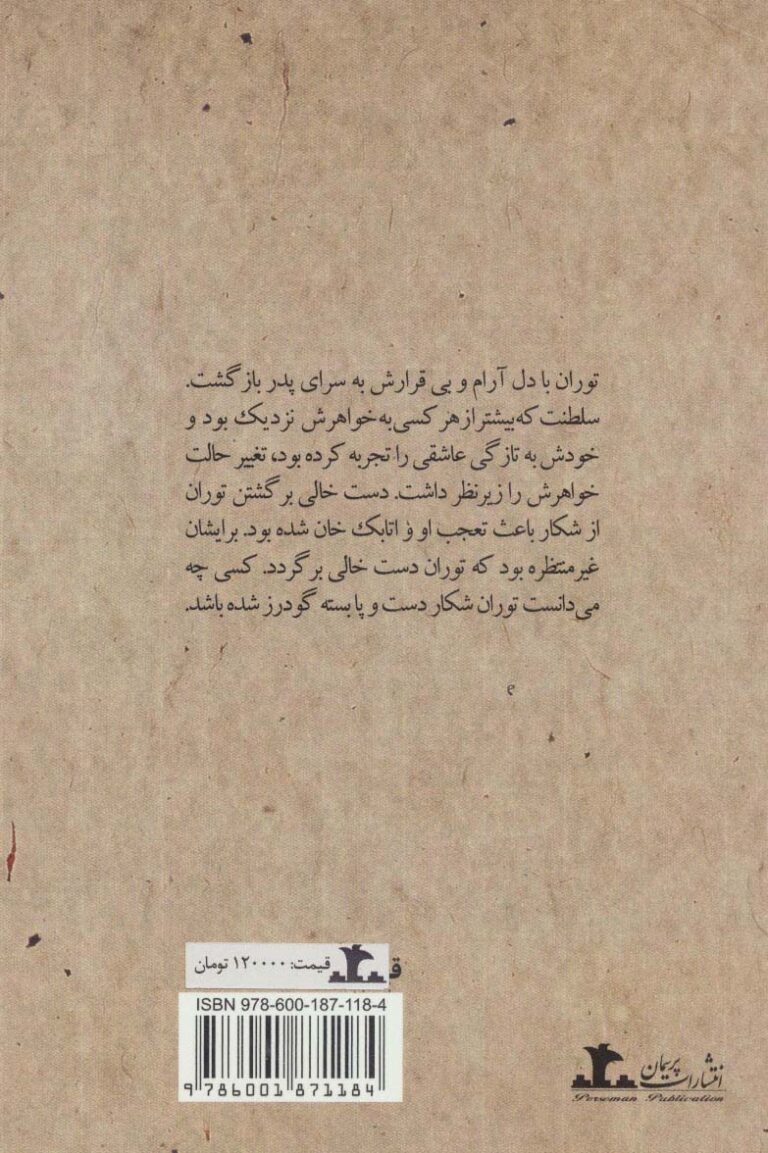 توران با دل آرام و بی قرارش به سرای پدر بازگشت.
سلطنت که بیشتر از هر کسی به خواهرش نزدیک بود و
خودش به تازگی عاشقی را تجربه کرده بود، تغییر حالت
خواهرش را زیرنظر داشت. دست خالی برگشتن توران
از شکار باعث تعجب او و اتابک خان شده بود. برایشان
غیرمنتظره بود که توران دست خالی برگردد. کسی چه
می‌دانست توران شکار دست و پا بسته گودرز شده باشد.
قیمت: ۱۲۰۰۰۰ تومان
ISBN 978-600-187-118-4
9 786001 871184
انتشارات پرسمان
Porseman Publication